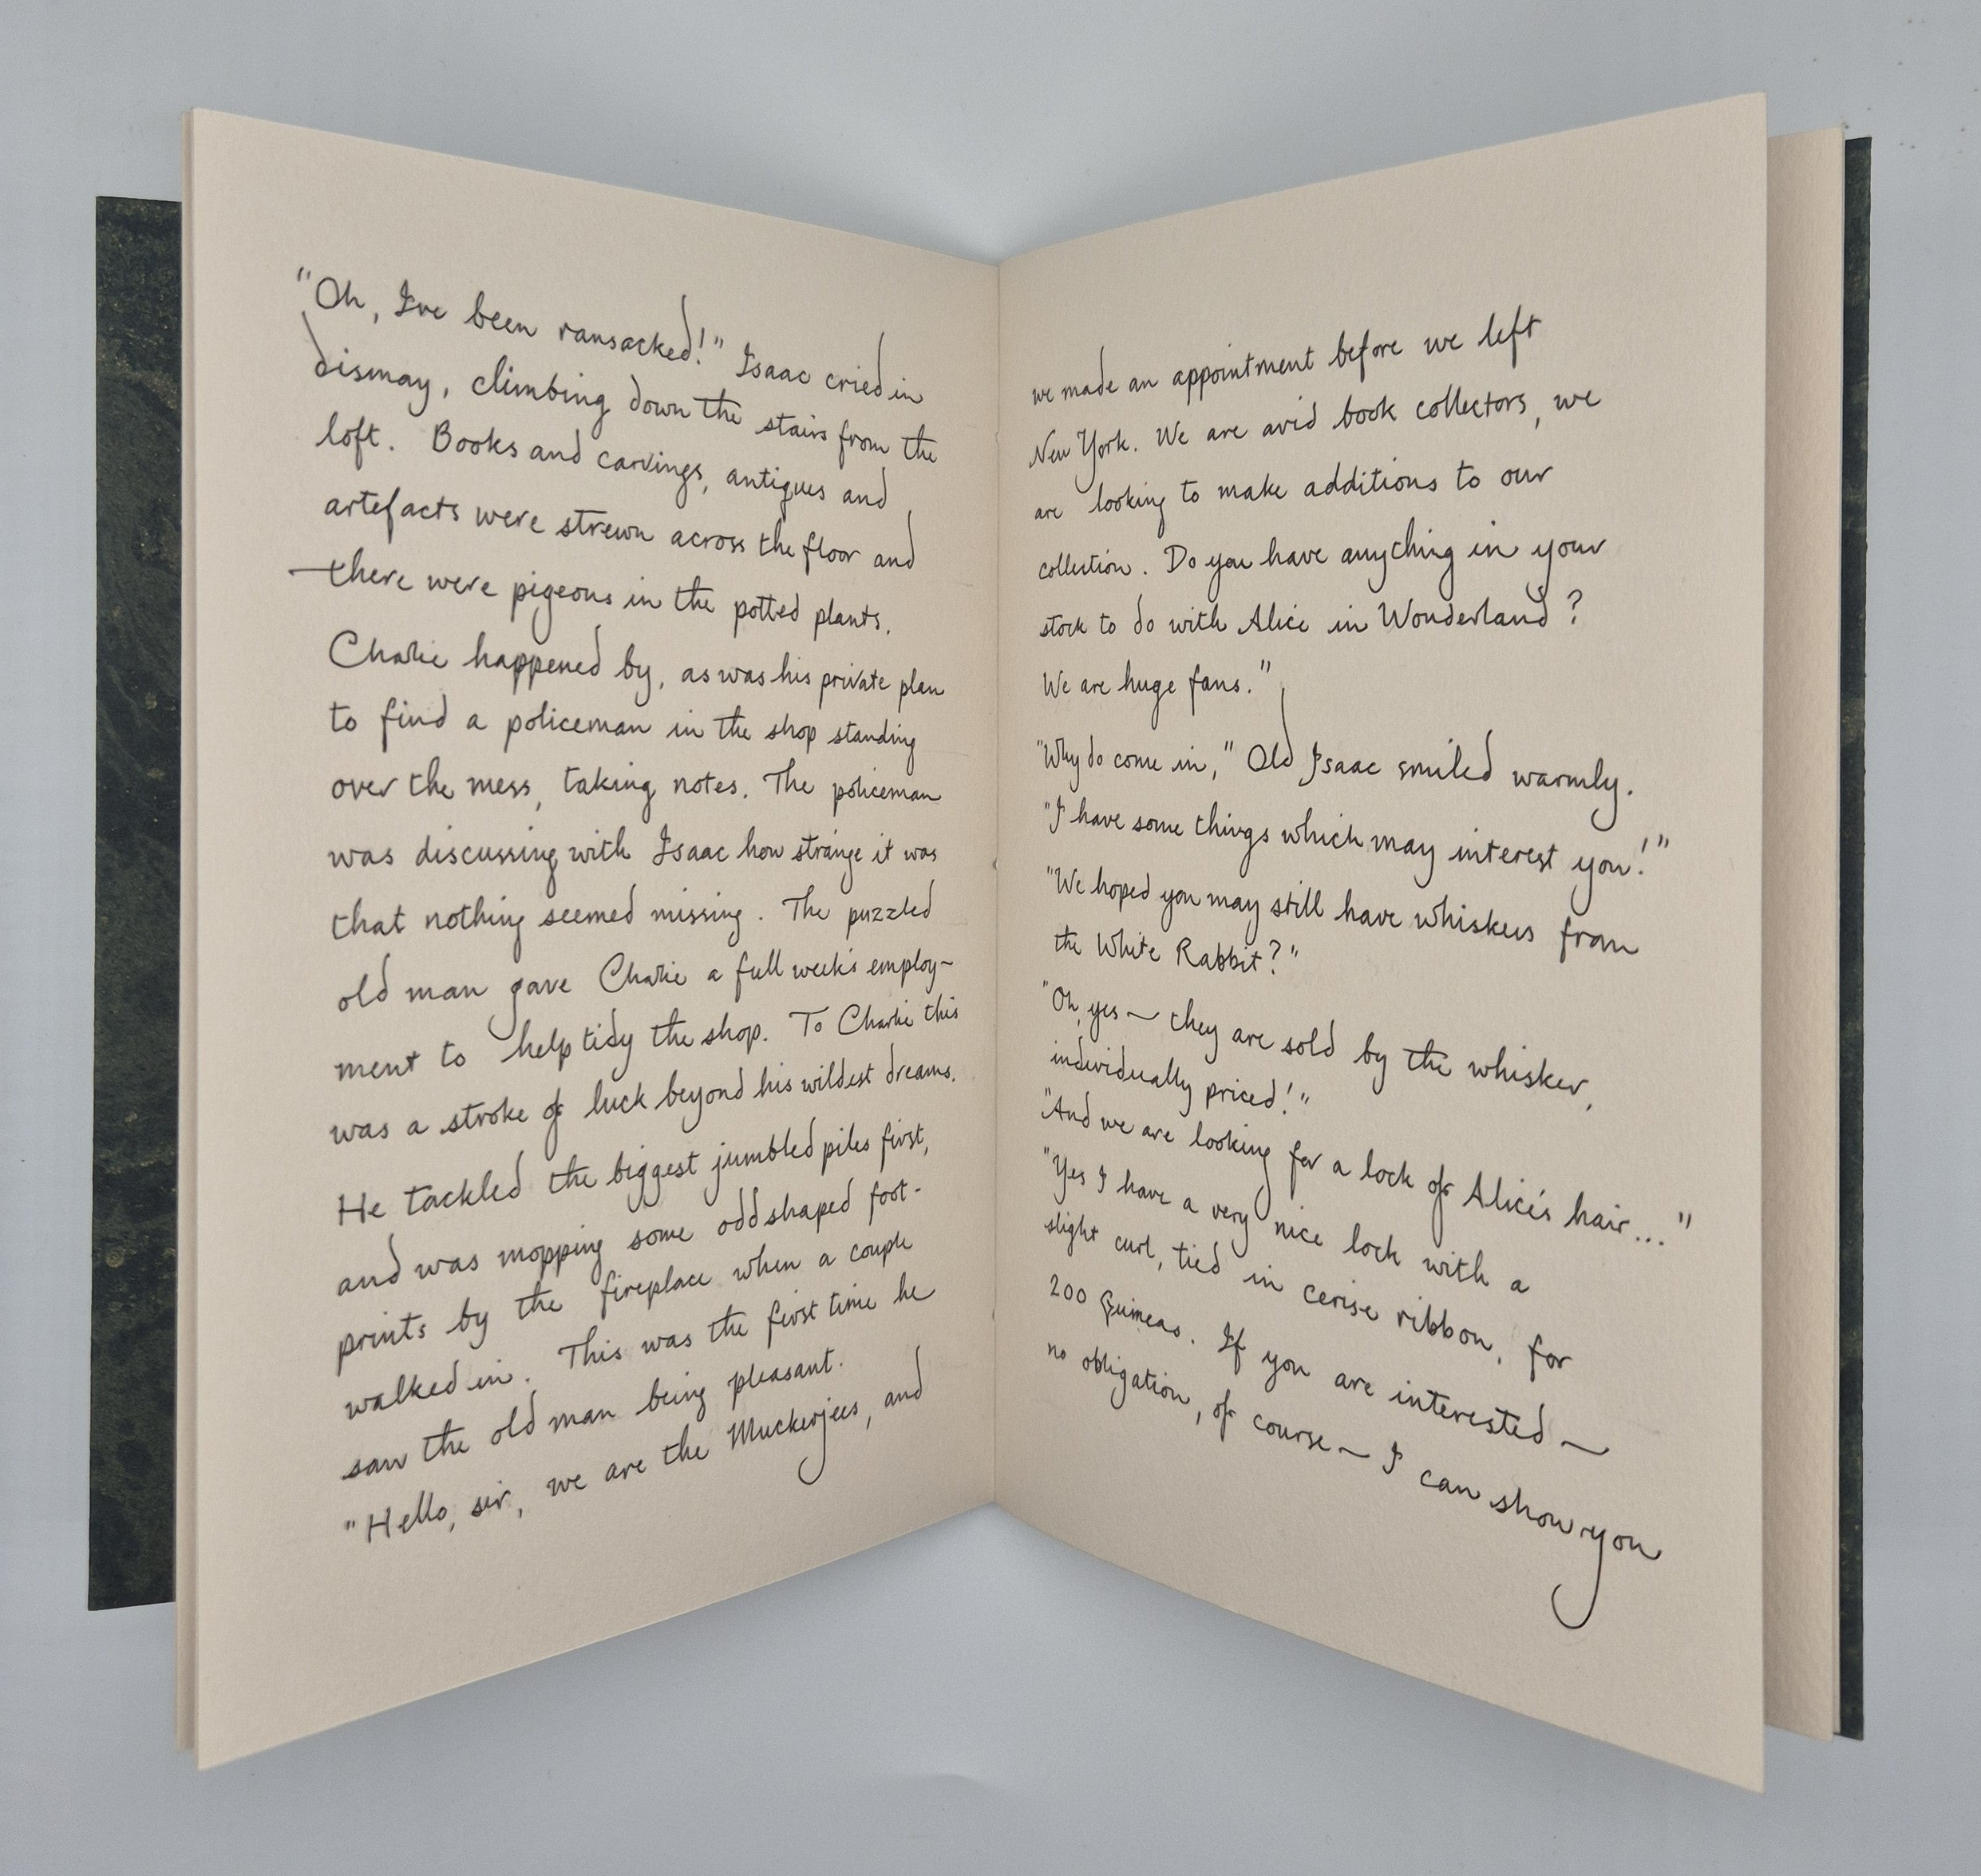 "Oh, I've been ransacked!" Isaac cried in
dismay, climbing down the stairs from the
loft. Books and carvings, antiques and
artefacts were strewn across the floor and
there were pigeons in the potted plants.
Charlie happened by, as was his private plan
to find a policeman in the shop standing
over the mess, taking notes. The policeman
was discussing with Isaac how strange it was
that nothing seemed missing. The puzzled
old man gave Charlie a full week's employ~
ment to help tidy the shop. To Charlie this
was a stroke of luck beyond his wildest dreams.
He tackled the biggest jumbled piles first,
and was mopping some odd shaped foot-
prints by the fireplace when a couple
walked in. This was the first time he
saw the old man being pleasant.
"Hello, sir, we are the Muckerjees, and
we made an appointment before we left
New York. We are avid book collectors, we
are looking to make additions to our
collection. Do you have anything in your
stock to do with Alice in Wonderland?
We are huge fans."
"Why do come in," Old Isaac smiled warmly.
"I have some things which may interest you!"
"We hoped you may still have whiskers from
the White Rabbit?"
"Oh, yes ~ they are sold by the whisker,
individually priced!"
"And we are looking for a lock of Alice's hair..."
"Yes I have a very nice lock with a
slight curl, tied in cerise ribbon, for
200 Guineas. If you are interested ~
no obligation, of course ~ I can show you